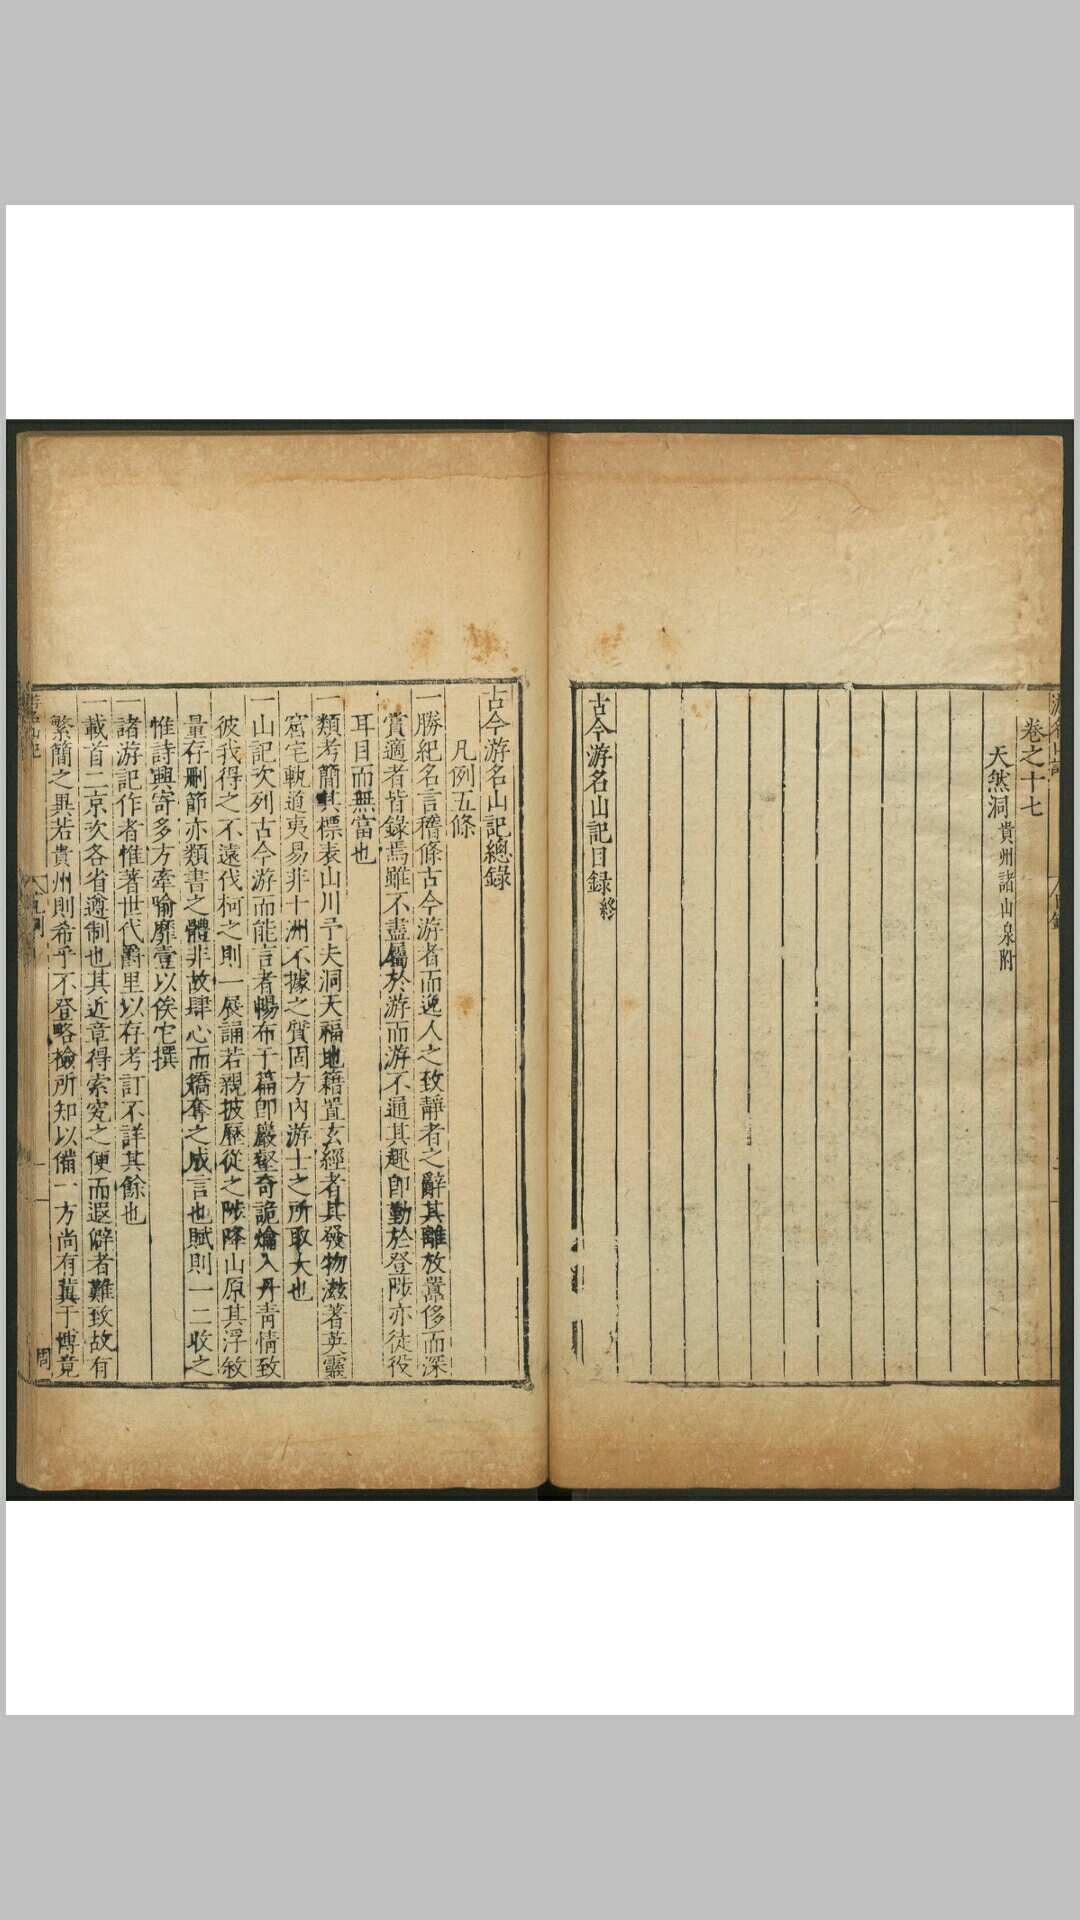 卷之十七
天然洞貴州諸山泉附
古今游名山記目錄終
古今游名山記總錄
凡例五條
一勝紀名言稽條古今游者而逸人之致靜者之辭其離放囂侈而深
賞適者皆錄焉雖不盡屬於游而游不通其趣卽勤於登陟亦徒役
耳目而無當也
一類考簡其標表山川予夫洞天福地籍置玄經者其發物滋著英靈
窟宅軌道夷易非十洲不據之質固方內游士之所取大也
一山記次列古今游而能言者暢布于篇卽巖壑奇詭爚入丹靑情致
彼我得之不遠伐柯之則一展誦若親披歷從之陟降山原其浮敘
量存刪節亦類書之體非故肆心而矯奪之成言也賦則一二收之
惟詩興寄多方牽喻靡壹以俟它撰
一諸游記作者惟著世代爵里以存考訂不詳其餘也
一載首二京次各省遵制也其近章得索究之便而遐僻者難致故有
繁簡之異若貴州則希乎不登略檢所知以備一方尚有冀于博竟